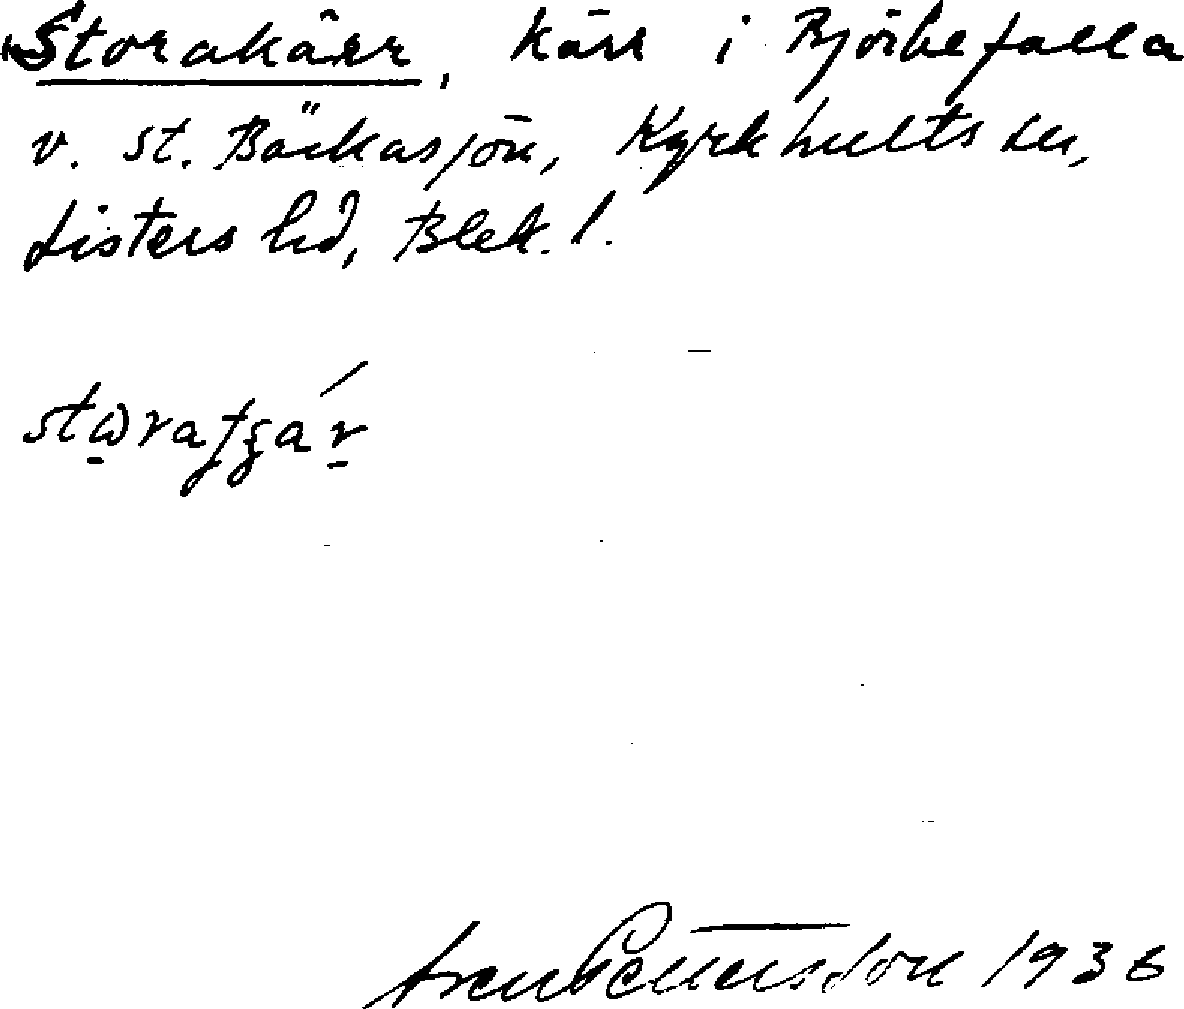 Storakärr, kärr i Björkefalla
v. St. Bäckasjön, Kyrkhults sn,
Listers hd, Blek. l.
Pettersson 1936